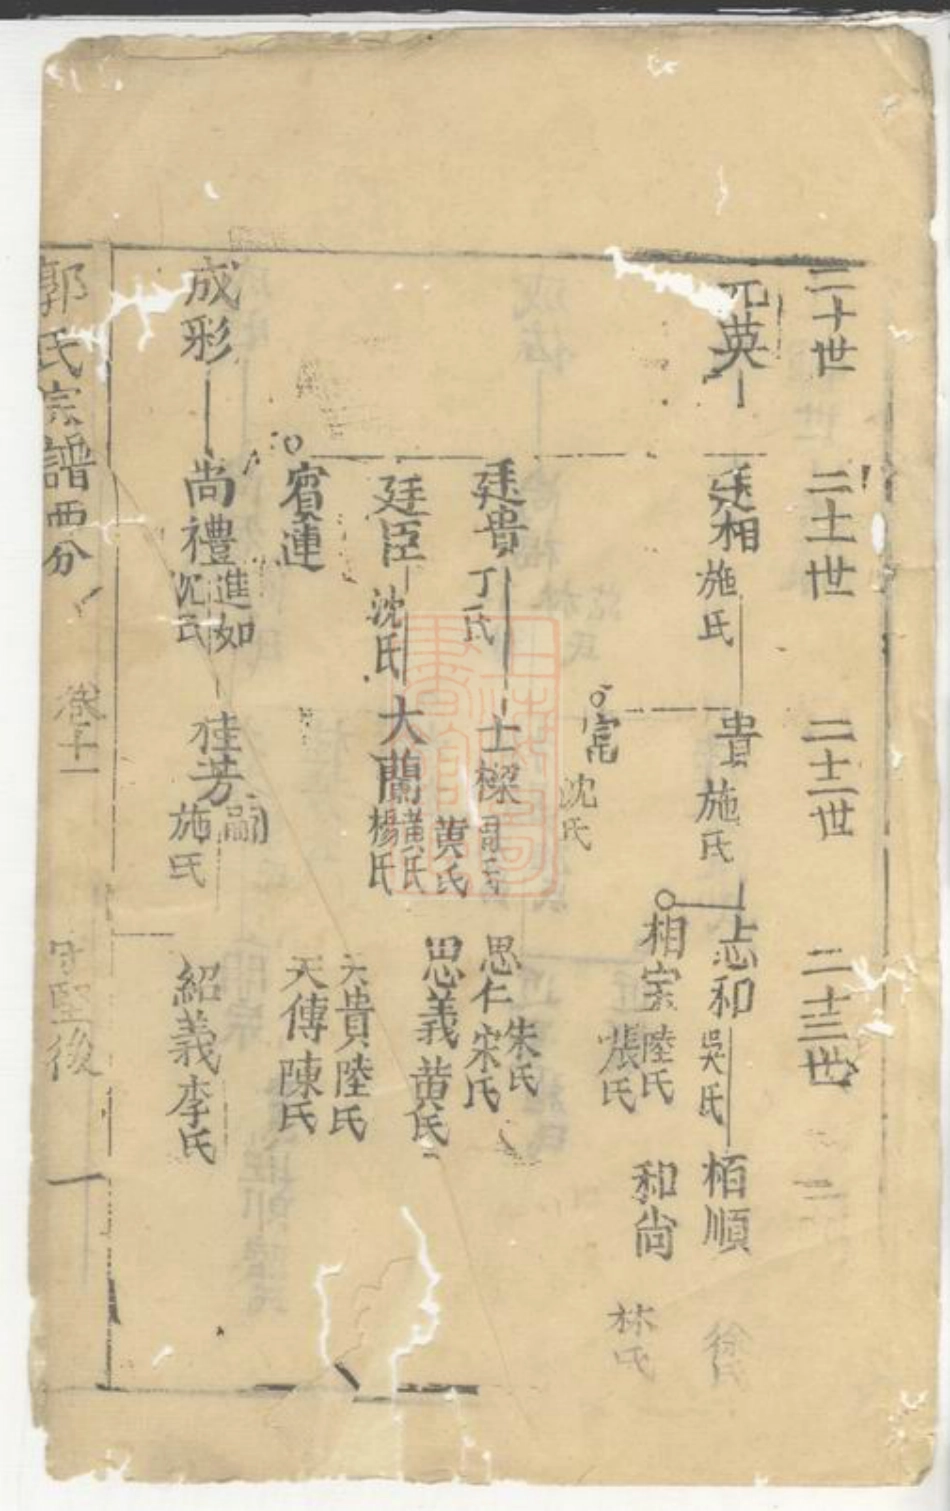 二十世
二十一世
二十二世
二十三世
二
元英
廷相
施氏
貴
施氏
志和
吳氏
栢順
徐
相宗
陸氏
張氏
和尚
林氏
甯
沈氏
廷貴
丁氏
士樑
周氏
黄氏
思仁
朱氏
宋氏
廷臣
沈氏
大蘭
黄氏
楊氏
思義
黄氏
賓連
天貴陸氏
天傳陳氏
成彤
尚禮
進如
沈氏
桂芳
嗣
施氏
紹義李氏
郭氏宗譜西分
卷十一
一